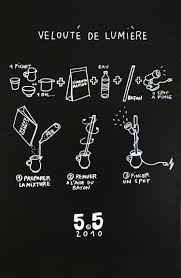 VELOUTÉ DE LUMIÈRE
1 PICHET
EAU
1 BOL...
BATON
1 SPOT
À PINCE
① PRÉPARER
LA MIXTURE
② REMUER
À L'AIDE DU
BATON
③ PINCER
UN SPOT
5.5
2010